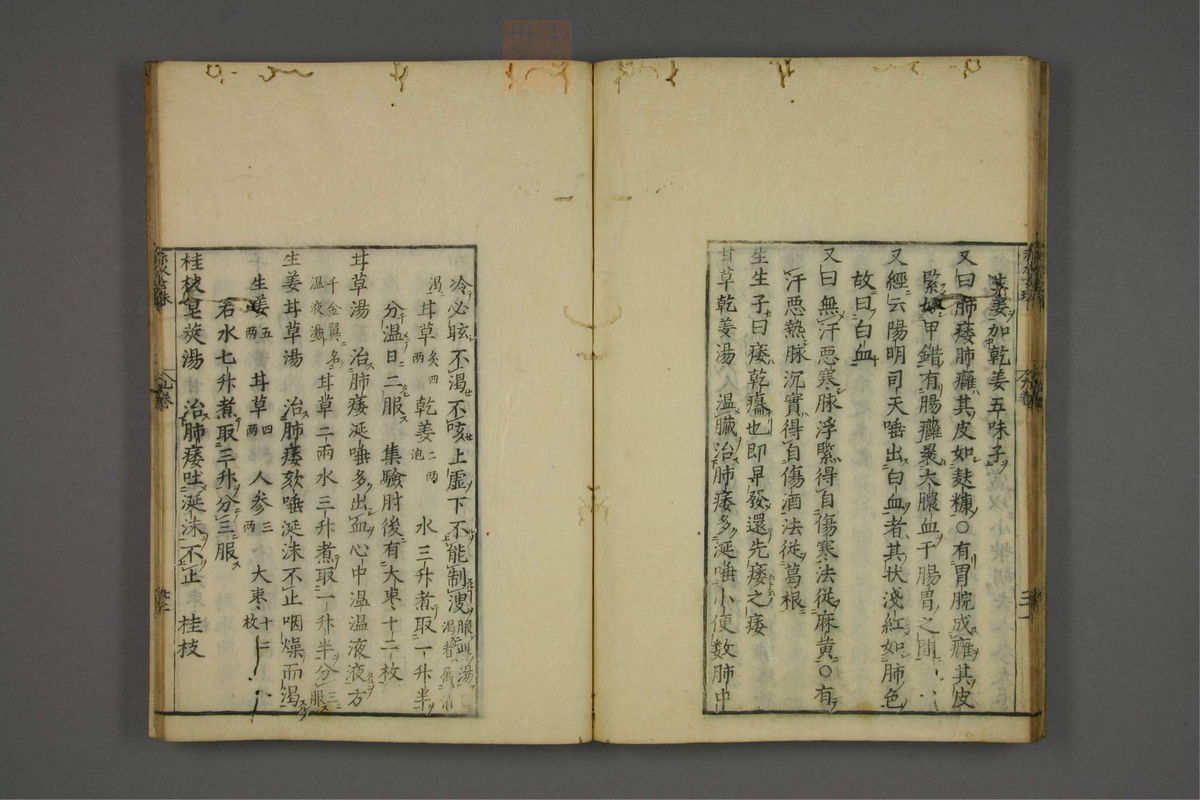 味麥加乾姜五味子
又曰肺痿肺癰其皮如麩糠○有胃脘成癰其皮
緊如甲錯有腸癰裹大膿血于腸胃之間
又經云陽明司天唾出白血者其状淺紅如肺色
故曰白血
又曰無汗惡寒脉浮緊得自傷寒法従麻黄○有
汗惡熱脉沉實得自傷酒法従葛根
生生子曰痿乾癟也即早發還先痿之痿
甘草乾姜湯 温臟治肺痿多涎唾小便数肺中
冷必眩不渴不咳上虚下不能制溲 服此湯渇者属消
渴 甘草炙四兩 乾姜二兩泡 水三升煮取一升半
分温日二服 集驗肘後有大棗十二枚
甘草湯 治肺痿涎唾多出血心中温温液液方
千金翼名温液湯 甘草二兩水三升煮取一升半分三服
生姜甘草湯 治肺痿欬唾涎沫不止咽燥而渴
生姜五兩 甘草四兩 人参三兩 大棗十二枚
右水七升煮取三升分三服
桂枝皂莢湯 治肺痿吐涎沫不止 桂枝